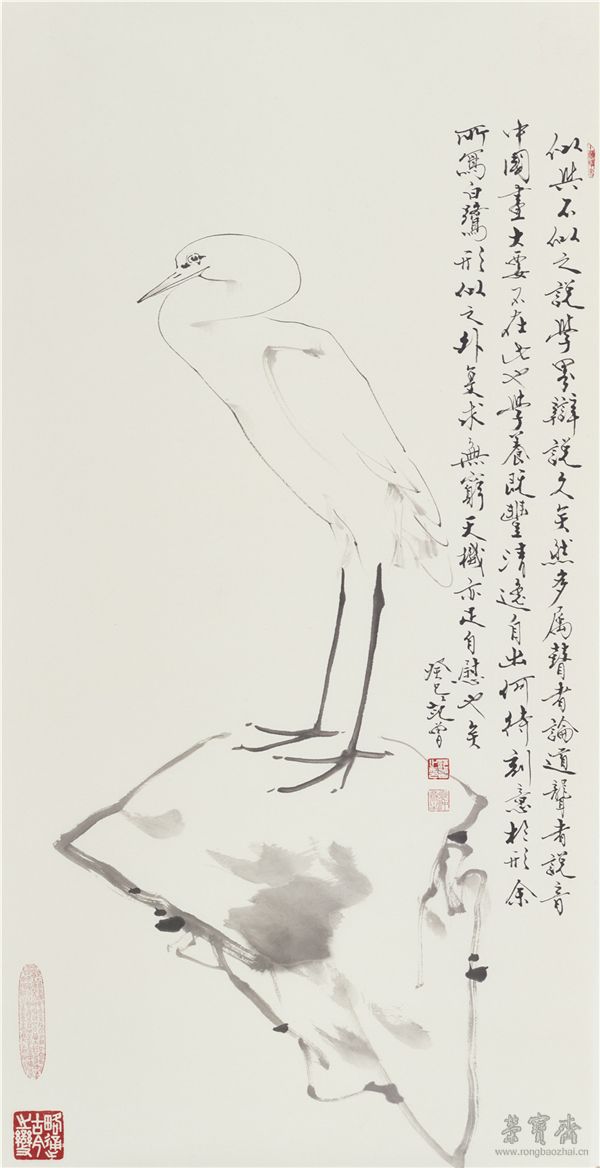 似與不似之說學界辯說久矣然多属瞽者論道聾者說音
中國畫大要不在此也學養既豐清逸自出何待刻意於形余
所寫白鷺形似之外复求無窮天機亦足自慰也矣
癸巳范曾
略通古今之變
榮寶齋
www.rongbaozhai.cn